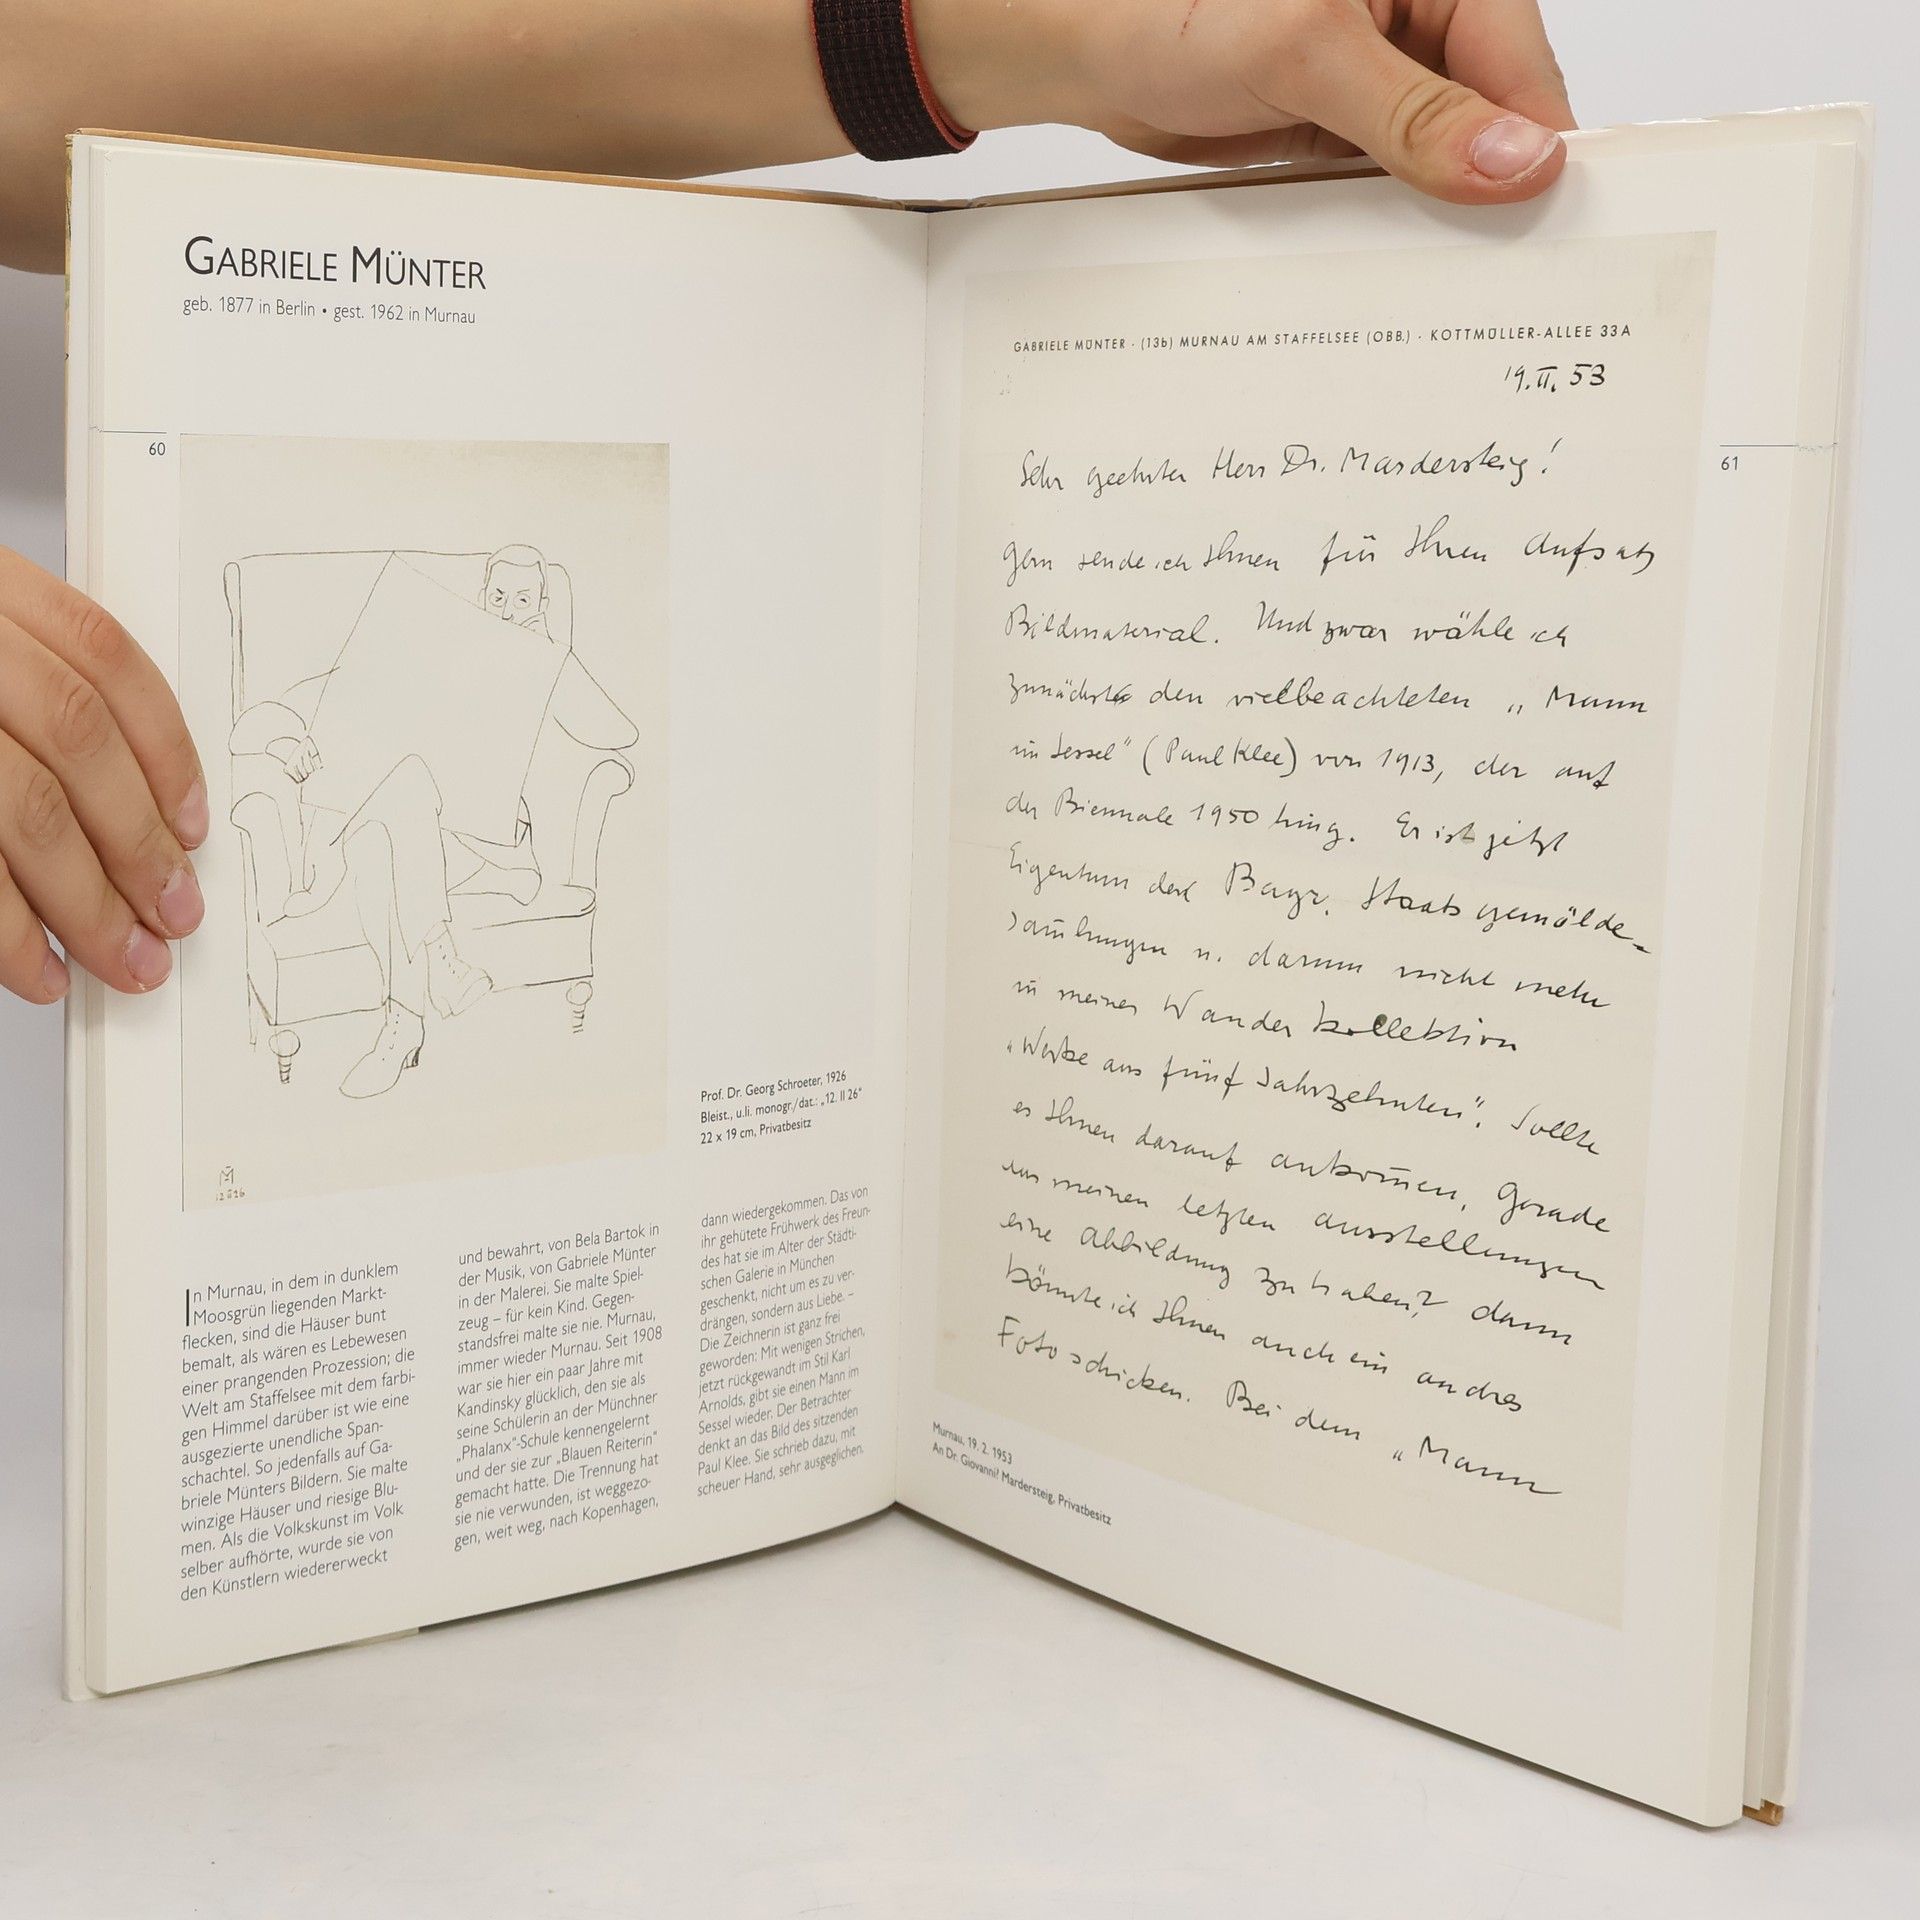 GABRIELE MÜNTER
geb. 1877 in Berlin • gest. 1962 in Murnau
60
M
12 II 26
Prof. Dr. Georg Schroeter, 1926
Bleist., u.li. monogr./dat.: „12. II 26“
22 x 19 cm, Privatbesitz
In Murnau, in dem in dunklem
Moosgrün liegenden Markt-
flecken, sind die Häuser bunt
bemalt, als wären es Lebewesen
einer prangenden Prozession; die
Welt am Staffelsee mit dem farbi-
gen Himmel darüber ist wie eine
ausgezierte unendliche Span-
schachtel. So jedenfalls auf Ga-
briele Münters Bildern. Sie malte
winzige Häuser und riesige Blu-
men. Als die Volkskunst im Volk
selber aufhörte, wurde sie von
den Künstlern wiedererweckt
und bewahrt, von Bela Bartok in
der Musik, von Gabriele Münter
in der Malerei. Sie malte Spiel-
zeug – für kein Kind. Gegen-
standsfrei malte sie nie. Murnau,
immer wieder Murnau. Seit 1908
war sie hier ein paar Jahre mit
Kandinsky glücklich, den sie als
seine Schülerin an der Münchner
„Phalanx“-Schule kennengelernt
und der sie zur „Blauen Reiterin“
gemacht hatte. Die Trennung hat
sie nie verwunden, ist weggezo-
gen, weit weg, nach Kopenhagen,
dann wiedergekommen. Das von
ihr gehütete Frühwerk des Freun-
des hat sie im Alter der Städti-
schen Galerie in München
geschenkt, nicht um es zu ver-
drängen, sondern aus Liebe. –
Die Zeichnerin ist ganz frei
geworden: Mit wenigen Strichen,
jetzt rückgewandt im Stil Karl
Arnolds, gibt sie einen Mann im
Sessel wieder. Der Betrachter
denkt an das Bild des sitzenden
Paul Klee. Sie schrieb dazu, mit
scheuer Hand, sehr ausgeglichen.
GABRIELE MÜNTER · (13b) MURNAU AM STAFFELSEE (OBB.) · KOTTMÜLLER-ALLEE 33A
19. II. 53
Sehr geehrter Herr Dr. Mardersteig!
gern sende ich Ihnen für Ihren Aufsatz
Bildmaterial. Und zwar wähle ich
zunächst den vielbeachteten „Mann
im Sessel“ (Paul Klee) von 1913, der auf
der Biennale 1950 hing. Er ist jetzt
Eigentum der Bayr. Staatsgemälde-
sam̄lungen u. darum nicht mehr
in meiner Wanderkollektion
„Werke aus fünf Jahrzehnten“. Sollte
es Ihnen darauf ankom̄en, gerade
aus meinen letzten Ausstellungen
eine Abbildung zu haben? dann
könnte ich Ihnen auch ein andres
Foto schicken. Bei dem „Mann
61
Murnau, 19. 2. 1953
An Dr. Giovanni? Mardersteig, Privatbesitz